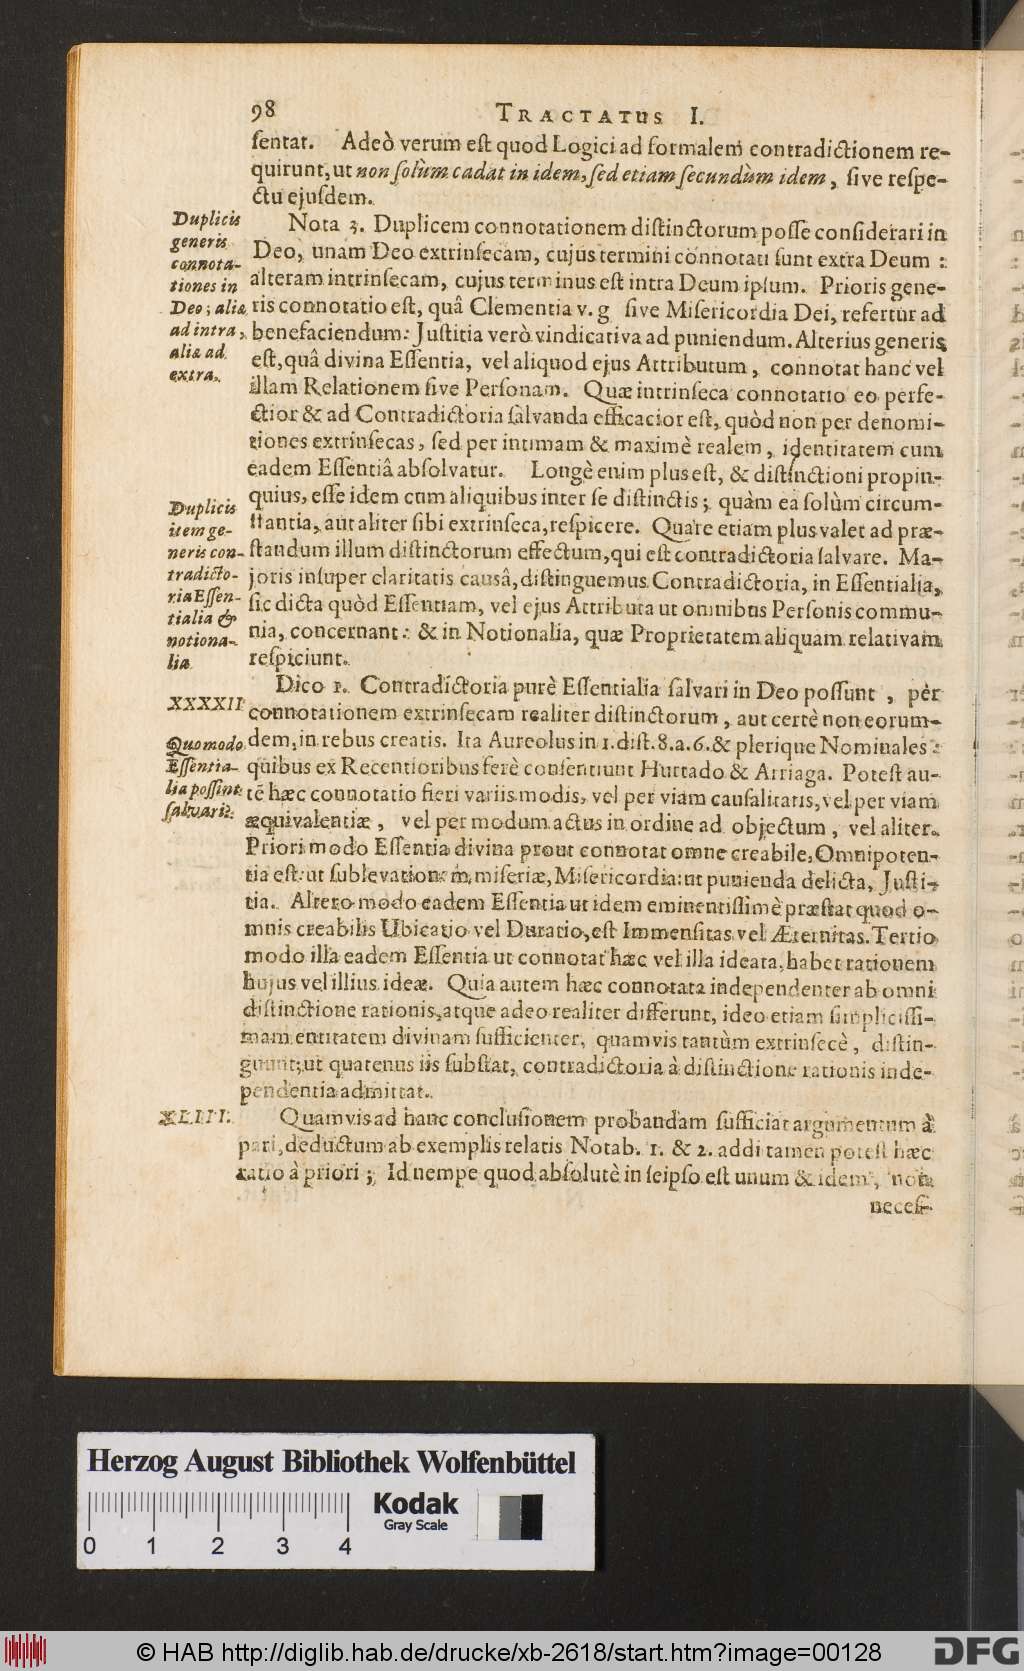 98 TRACTATUS I.
ſentat. Adeò verum eſt quod Logici ad formalem contradictionem re-
quirunt, ut non ſolùm cadat in idem, ſed etiam ſecundùm idem, ſive reſpe-
ctu ejuſdem.
Duplicis
generis
connota-
tiones in
Deo; aliæ
ad intra,
aliæ ad
extra.
Nota 3. Duplicem connotationem diſtinctorum poſſe conſiderari in
Deo, unam Deo extrinſecam, cujus termini connotati ſunt extra Deum :
alteram intrinſecam, cujus terminus eſt intra Deum ipſum. Prioris gene-
ris connotatio eſt, quâ Clementia v. g ſive Miſericordia Dei, refertur ad
benefaciendum: Juſtitia verò vindicativa ad puniendum. Alterius generis
eſt, quâ divina Eſſentia, vel aliquod ejus Attributum, connotat hanc vel
illam Relationem ſive Perſonam. Quæ intrinſeca connotatio eo perfe-
ctior & ad Contradictoria ſalvanda efficacior eſt, quòd non per denomi-
tiones extrinſecas, ſed per intimam & maximè realem, identitatem cum
eadem Eſſentiâ abſolvatur. Longè enim plus eſt, & diſtinctioni propin-
quius, eſſe idem cum aliquibus inter ſe diſtinctis; quàm ea ſolùm circum-
ſtantia, aut aliter ſibi extrinſeca, reſpicere. Quare etiam plus valet ad præ-
ſtandum illum diſtinctorum effectum, qui eſt contradictoria ſalvare. Ma-
joris inſuper claritatis causâ, diſtinguemus Contradictoria, in Eſſentialia,
ſic dicta quòd Eſſentiam, vel ejus Attributa ut omnibus Perſonis commu-
nia, concernant: & in Notionalia, quæ Proprietatem aliquam relativam
reſpiciunt.
Duplicis
item ge-
neris con-
tradicto-
ria Eſſen-
tialia &
notiona-
lia
XXXXII
Quomodo
Eſſentia-
lia poſſint
ſalvari?
Dico 1. Contradictoria purè Eſſentialia ſalvari in Deo poſſunt, pèr
connotationem extrinſecam realiter diſtinctorum, aut certè non eorum-
dem, in rebus creatis. Ita Aureolus in 1. diſt. 8. a. 6. & plerique Nominales :
quibus ex Recentioribus ferè conſentiunt Hurtado & Arriaga. Poteſt au-
tē hæc connotatio fieri variis modis, vel per viam cauſalitatis, vel per viam
æquivalentiæ, vel per modum actus in ordine ad objectum, vel aliter.
Priori modo Eſſentia divina prout connotat omne creabile, Omnipoten-
tia eſt: ut ſublevationem miſeriæ, Miſericordia: ut punienda delicta, Juſti-
tia. Altero modo eadem Eſſentia ut idem eminentiſſimè præſtat quod o-
mnis creabilis Ubicatio vel Duratio, eſt Immenſitas vel Æternitas. Tertio
modo illa eadem Eſſentia ut connotat hæc vel illa ideata, habet rationem
hujus vel illius ideæ. Quia autem hæc connotata independenter ab omni
diſtinctione rationis, atque adeo realiter differunt, ideo etiam ſimpliciſſi-
mam entitatem divinam ſufficienter, quamvis tantùm extrinſecè, diſtin-
guunt; ut quatenus iis ſubſtat, contradictoria à diſtinctione rationis inde-
pendentia admittat.
XLIII.
Quamvis ad hanc concluſionem probandam ſufficiat argumentum à
pari, deductum ab exemplis relatis Notab. 1. & 2. addi tamen poteſt hæc
ratio à priori; Id nempe quod abſolutè in ſeipſo eſt unum & idem, non
neceſ-
Herzog August Bibliothek Wolfenbüttel
Kodak
Gray Scale
0 1 2 3 4
© HAB http://diglib.hab.de/drucke/xb-2618/start.htm?image=00128
DFG